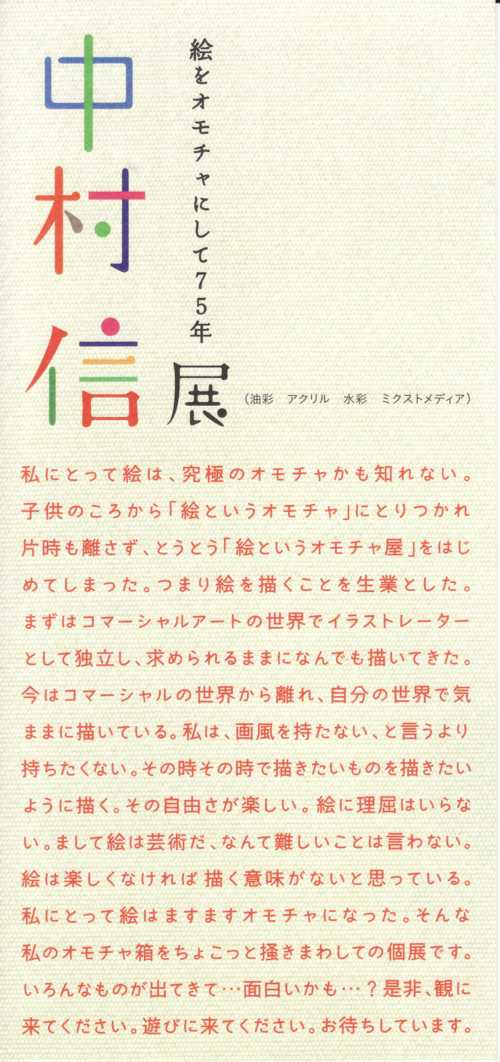 中村信
絵をオモチャにして75年
展
（油彩　アクリル　水彩　ミクストメディア）
私にとって絵は、究極のオモチャかも知れない。
子供のころから「絵というオモチャ」にとりつかれ
片時も離さず、とうとう「絵というオモチャ屋」をはじ
めてしまった。つまり絵を描くことを生業とした。
まずはコマーシャルアートの世界でイラストレーター
として独立し、求められるままになんでも描いてきた。
今はコマーシャルの世界から離れ、自分の世界で気
ままに描いている。私は、画風を持たない、と言うより
持ちたくない。その時その時で描きたいものを描きたい
ように描く。その自由さが楽しい。絵に理屈はいらな
い。まして絵は芸術だ、なんて難しいことは言わない。
絵は楽しくなければ描く意味がないと思っている。
私にとって絵はますますオモチャになった。そんな
私のオモチャ箱をちょこっと掻きまわしての個展です。
いろんなものが出てきて…面白いかも…？是非、観に
来てください。遊びに来てください。お待ちしています。